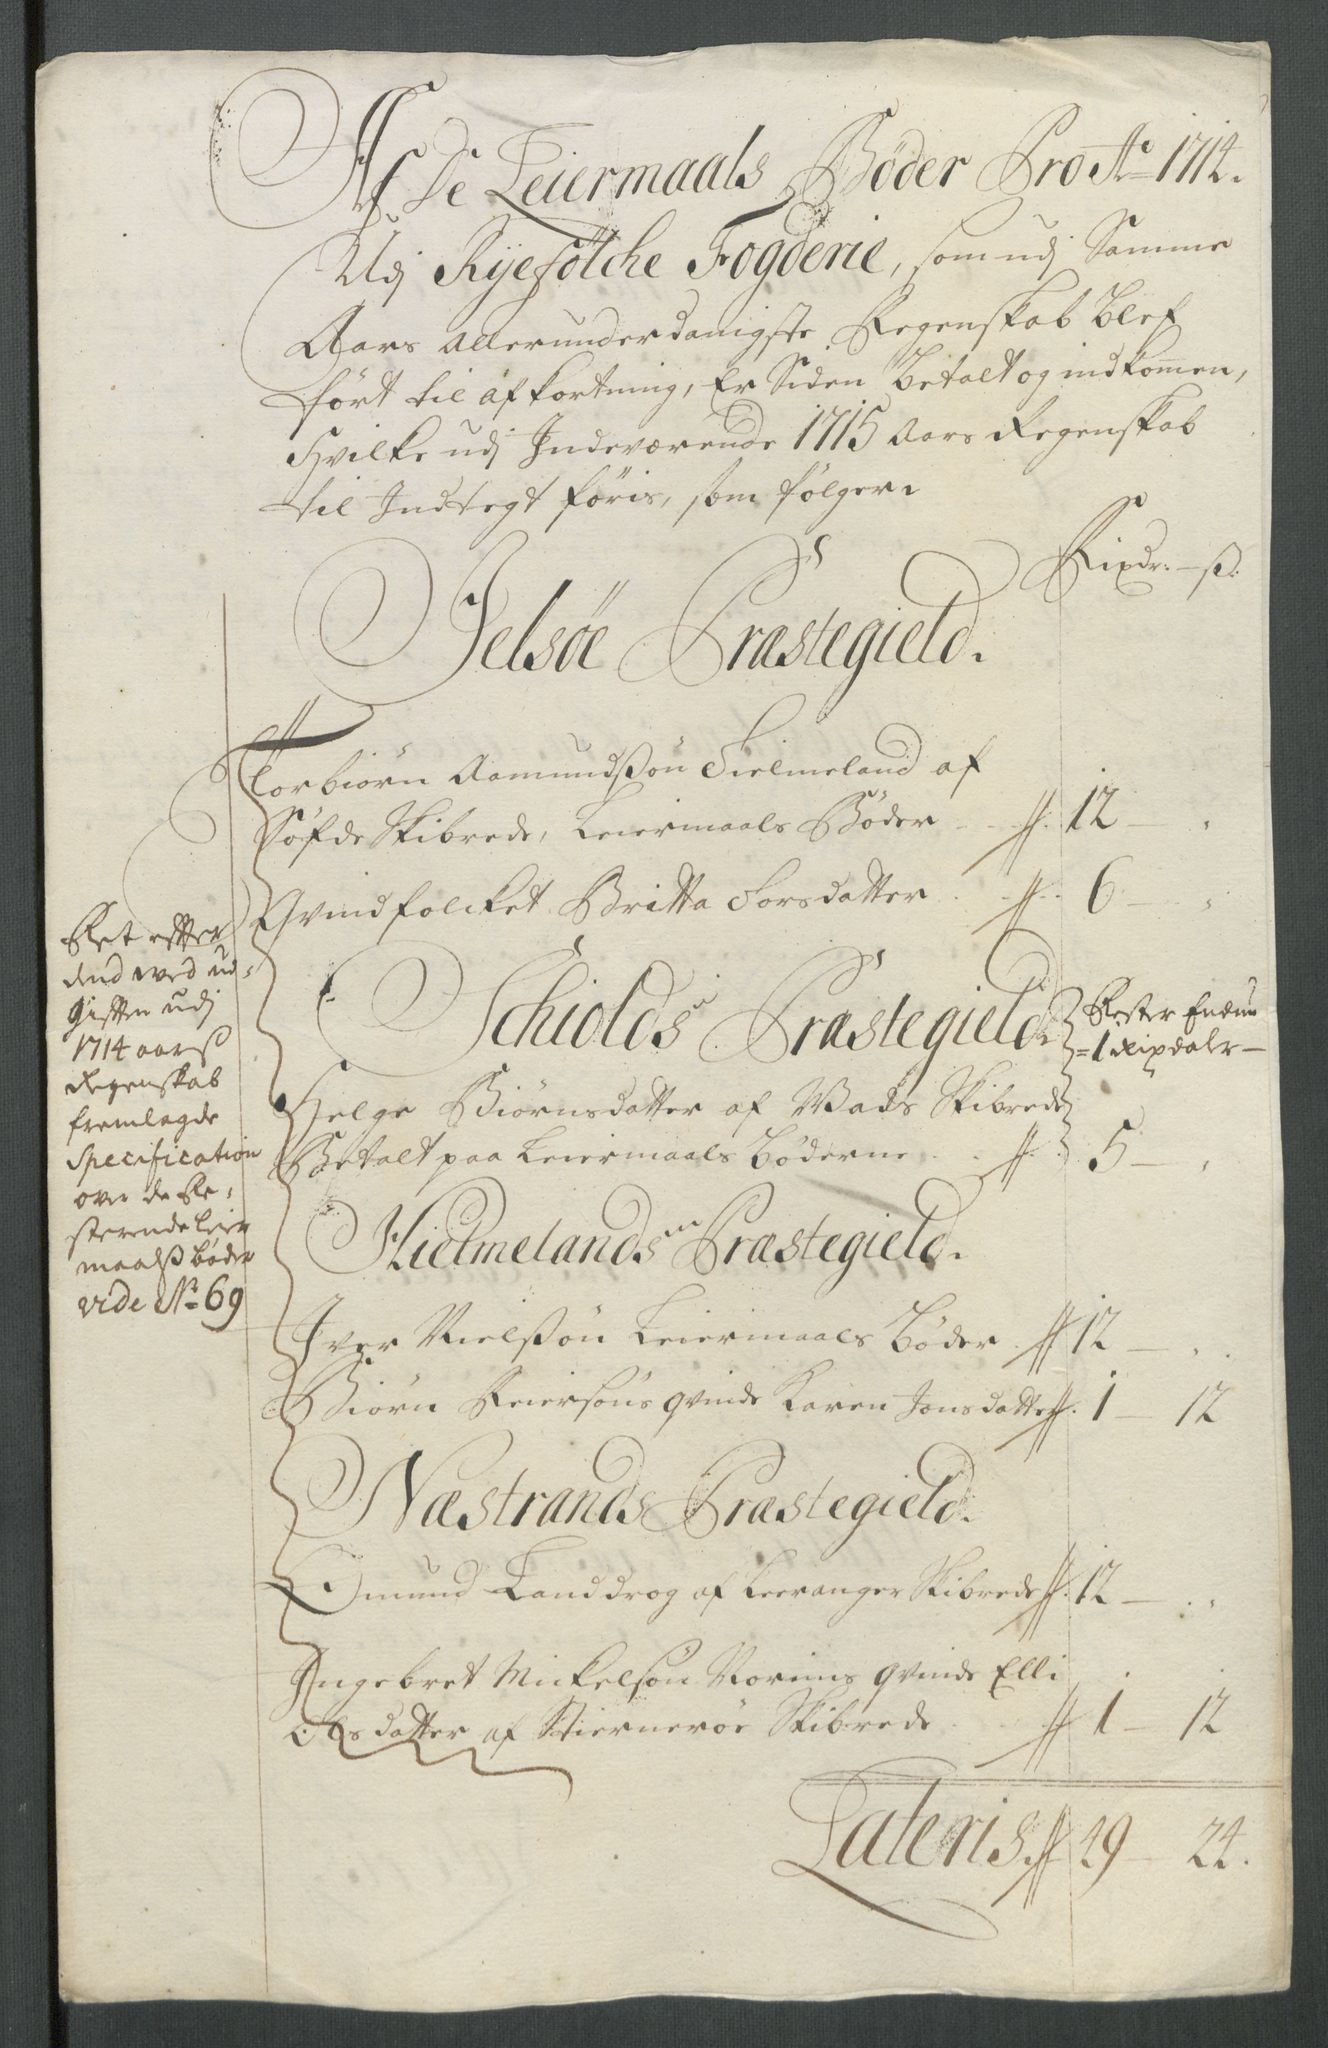 Af De Leiermaals Bøder Pro Ao 1714.
Udj Ryefølche Fogderie, som udj Samme
Aars Allerunderdanigste Regenskab blef
ført til afkortning, Er Siden Betalt og indkommen,
Hvilke udj Indeværende 1715 Aars Regenskab
til Indtegt føris, som følger.
Rixdr. – ß.
Jelsøe Præstegield.
Torbiørn Aamundßøn Fielmeland af
Søfde Skibrede, Leiermaals Bøder 12 –
Qvindfolcket Britta Torsdatter 6 –
Schiolds Præstegield.
Rester Endnu
= 1 Rixdaler –
Helge Biørnsdatter af Vads Skibrede
Betalt paa Leiermaals Bøderne 5 –
Hielmelands Præstegield.
Iver Nielßøn Leiermaals Bøder 12 –
Biørn Reiersøns qvinde Karen Jonsdatter 1 – 12
Næstrands Præstegield.
Omund Landdrog af Leeranger Skibrede 12 –
Ingebret Mickelsøn Norims qvinde Elli
Olsdatter af Stiernerøe Skibrede 1 – 12
Lateris 49 – 24.
Ret effter
dend wed ud-
gifften udj
1714 aarß
Regenskab
fremlagde
Specification
over de Re-
sterende Leier
maalß bøder
vide No 69